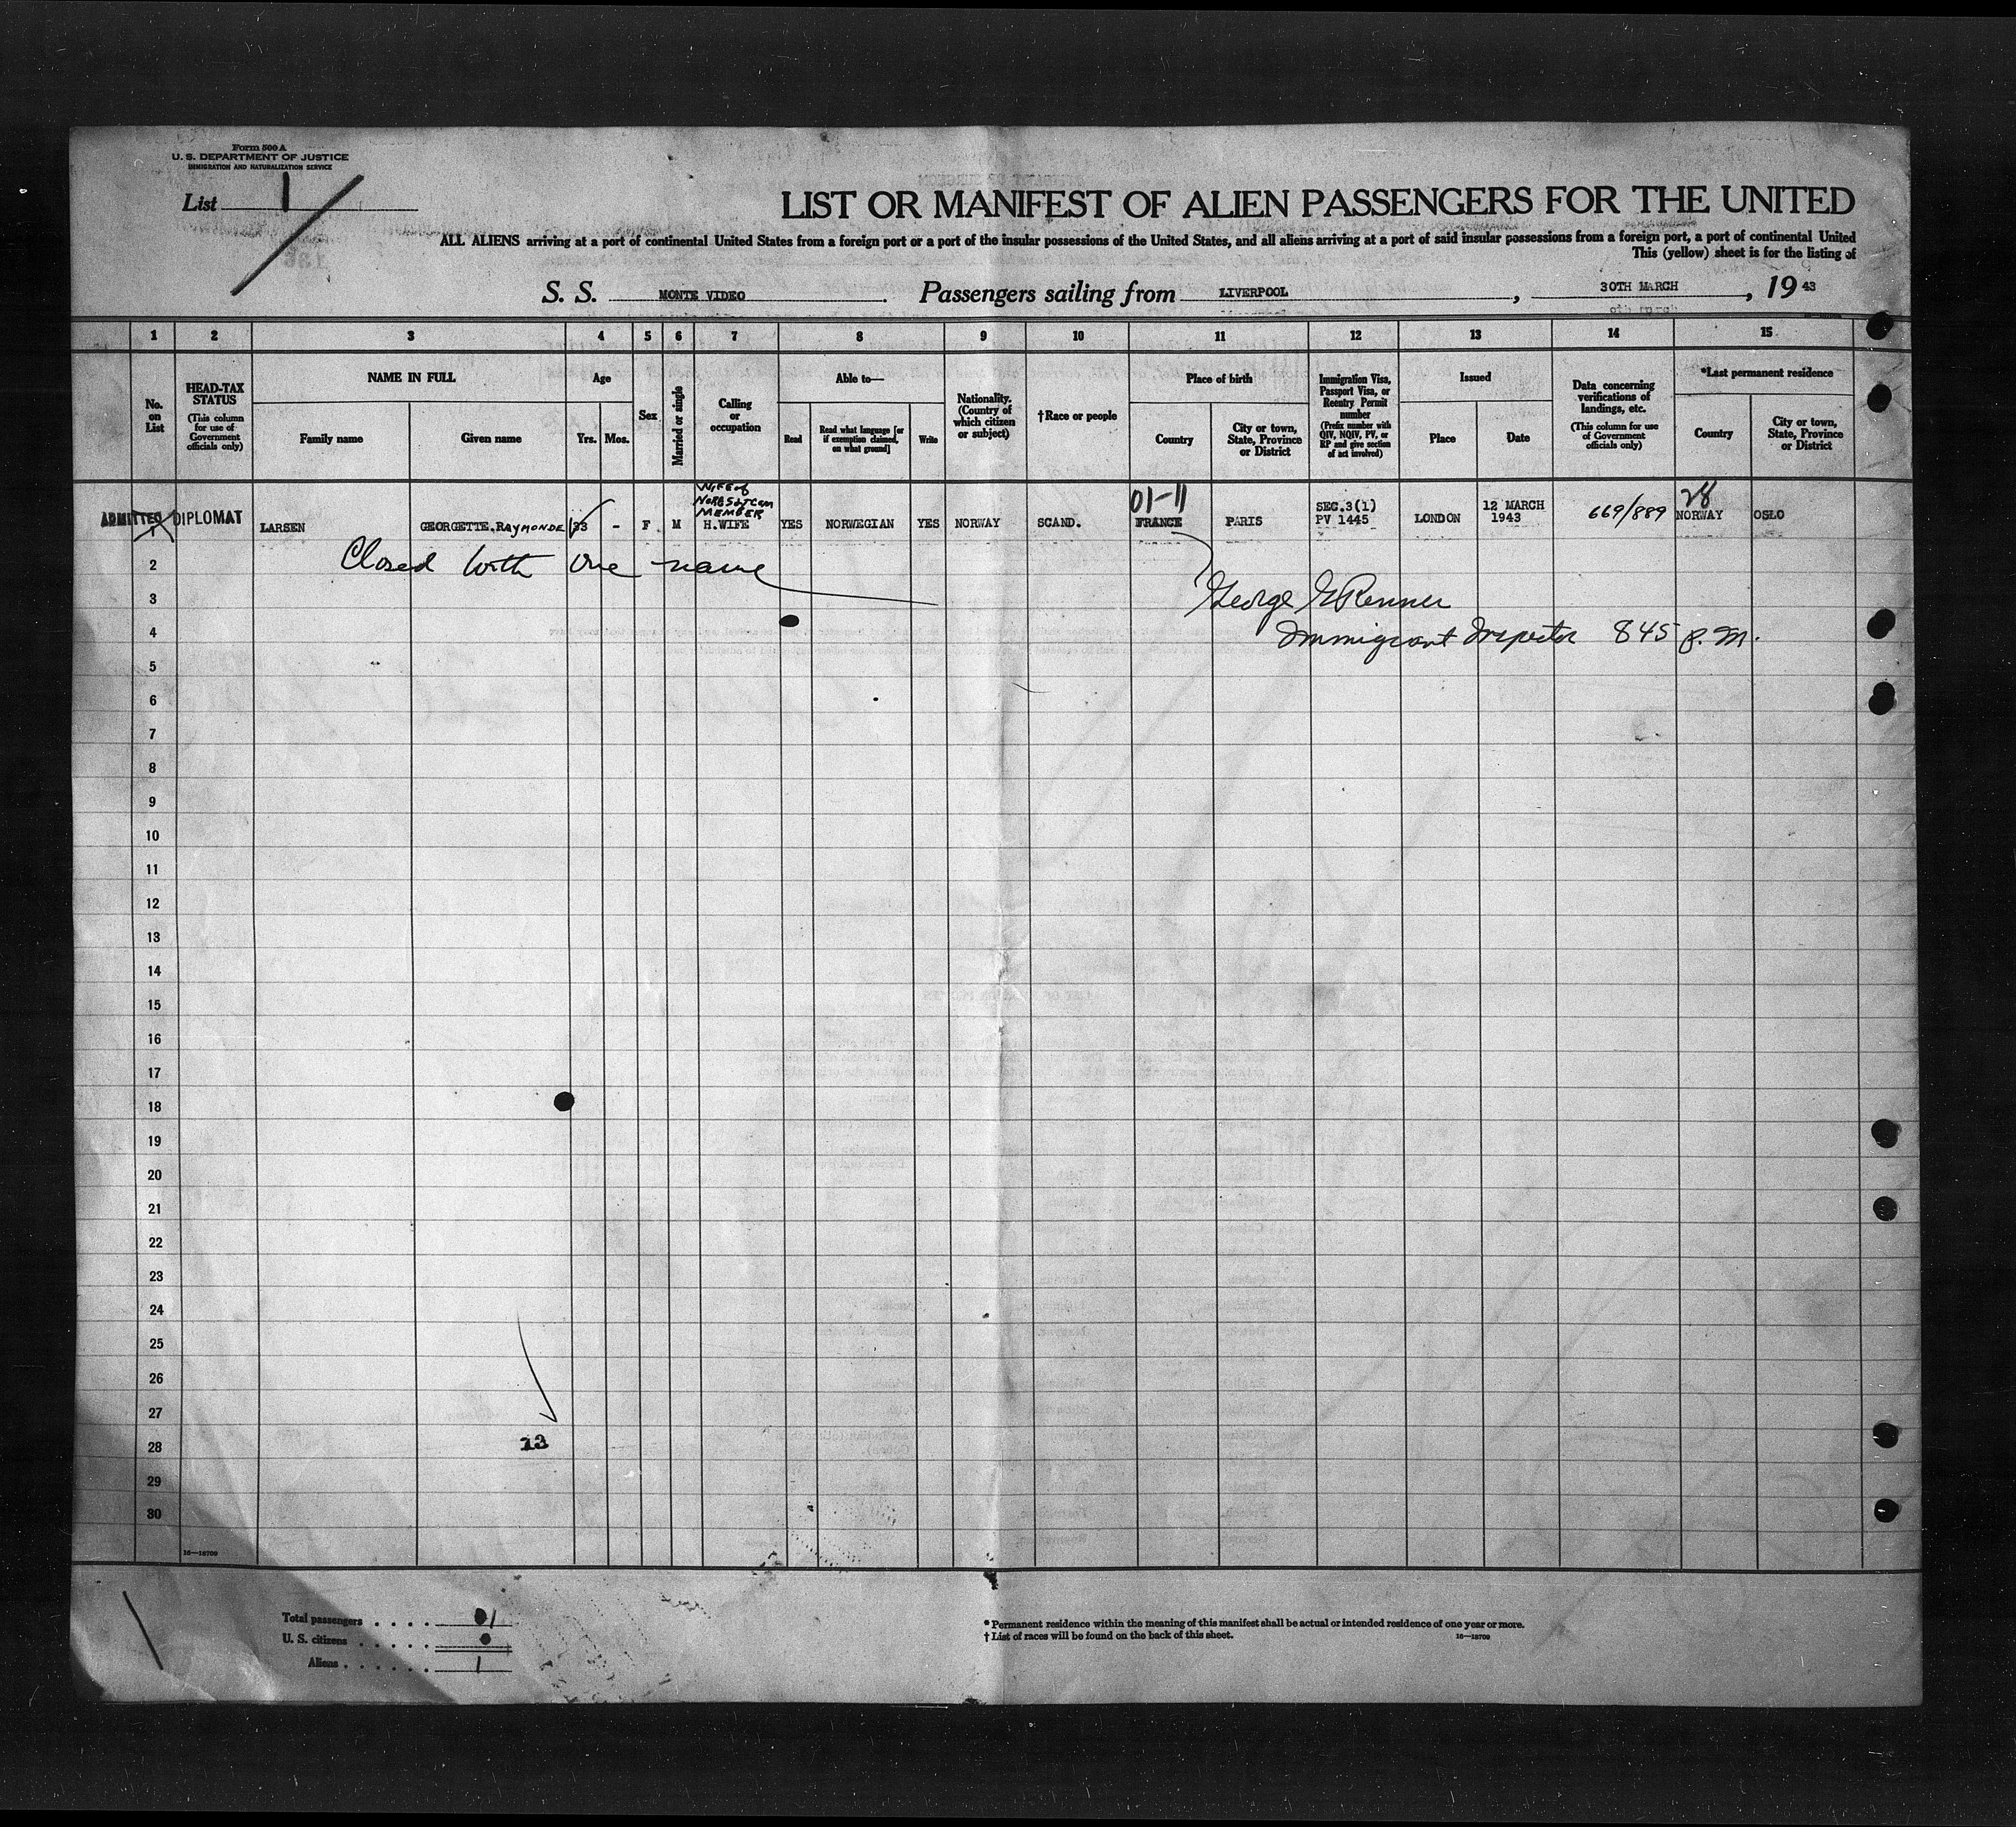 Form 500 A
U. S. DEPARTMENT OF JUSTICE
IMMIGRATION AND NATURALIZATION SERVICE
List 1
LIST OR MANIFEST OF ALIEN PASSENGERS FOR THE UNITED
ALL ALIENS arriving at a port of continental United States from a foreign port or a port of the insular possessions of the United States, and all aliens arriving at a port of said insular possessions from a foreign port, a port of continental United
This (yellow) sheet is for the listing of
S. S. MONTE VIDEO Passengers sailing from LIVERPOOL, 30TH MARCH, 19 43
1 2 3 4 5 6 7 8 9 10 11 12 13 14 15
No. on List
HEAD-TAX STATUS
(This column for use of Government officials only)
NAME IN FULL
Family name
Given name
Age
Yrs.
Mos.
Sex
Married or single
Calling or occupation
Able to—
Read
Read what language [or if exemption claimed, on what ground]
Write
Nationality. (Country of which citizen or subject)
†Race or people
Place of birth
Country
City or town, State, Province or District
Immigration Visa, Passport Visa, or Reentry Permit number
(Prefix number with QIV, NQIV, PV, or RP and give section of act involved)
Issued
Place
Date
Data concerning verifications of landings, etc.
(This column for use of Government officials only)
*Last permanent residence
Country
City or town, State, Province or District
WIFE of
MEMBER
01-11
28
ADMITTED DIPLOMAT
1 LARSEN GEORGETTE.RAYMONDE 33 - F M H.WIFE YES NORWEGIAN YES NORWAY SCAND. FRANCE PARIS SEC.3(1) PV 1445 LONDON 12 MARCH 1943 669/889 NORWAY OSLO
2 Closed with one name
3 George G Renner
4 Immigrant Inspector 845 P.M.
5
6
7
8
9
10
11
12
13
14
15
16
17
18
19
20
21
22
23
24
25
26
27
28 13
29
30
16—18709
Total passengers . . . . 1
U. S. citizens . . . . .
Aliens . . . . . . 1
* Permanent residence within the meaning of this manifest shall be actual or intended residence of one year or more.
† List of races will be found on the back of this sheet. 16—18709